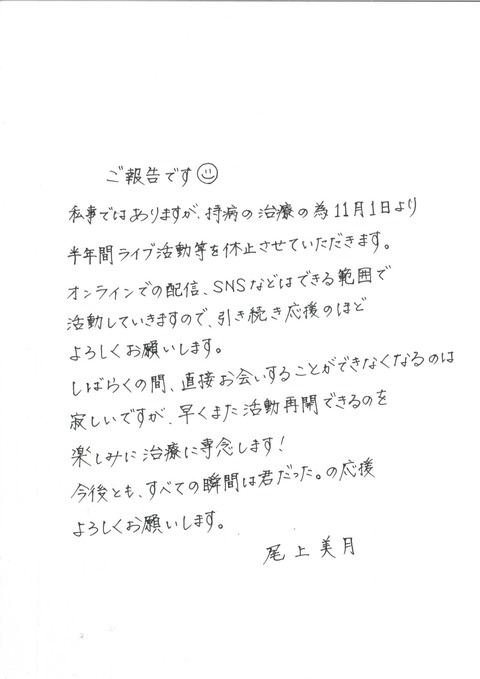 ご報告です☺
私事ではありますが、持病の治療の為11月1日より
半年間ライブ活動等を休止させていただきます。
オンラインでの配信、SNSなどはできる範囲で
活動していきますので、引き続き応援のほど
よろしくお願いします。
しばらくの間、直接お会いすることができなくなるのは
寂しいですが、早くまた活動再開できるのを
楽しみに治療に専念します!
今後とも、すべての瞬間は君だった。の応援
よろしくお願いします。
尾上美月